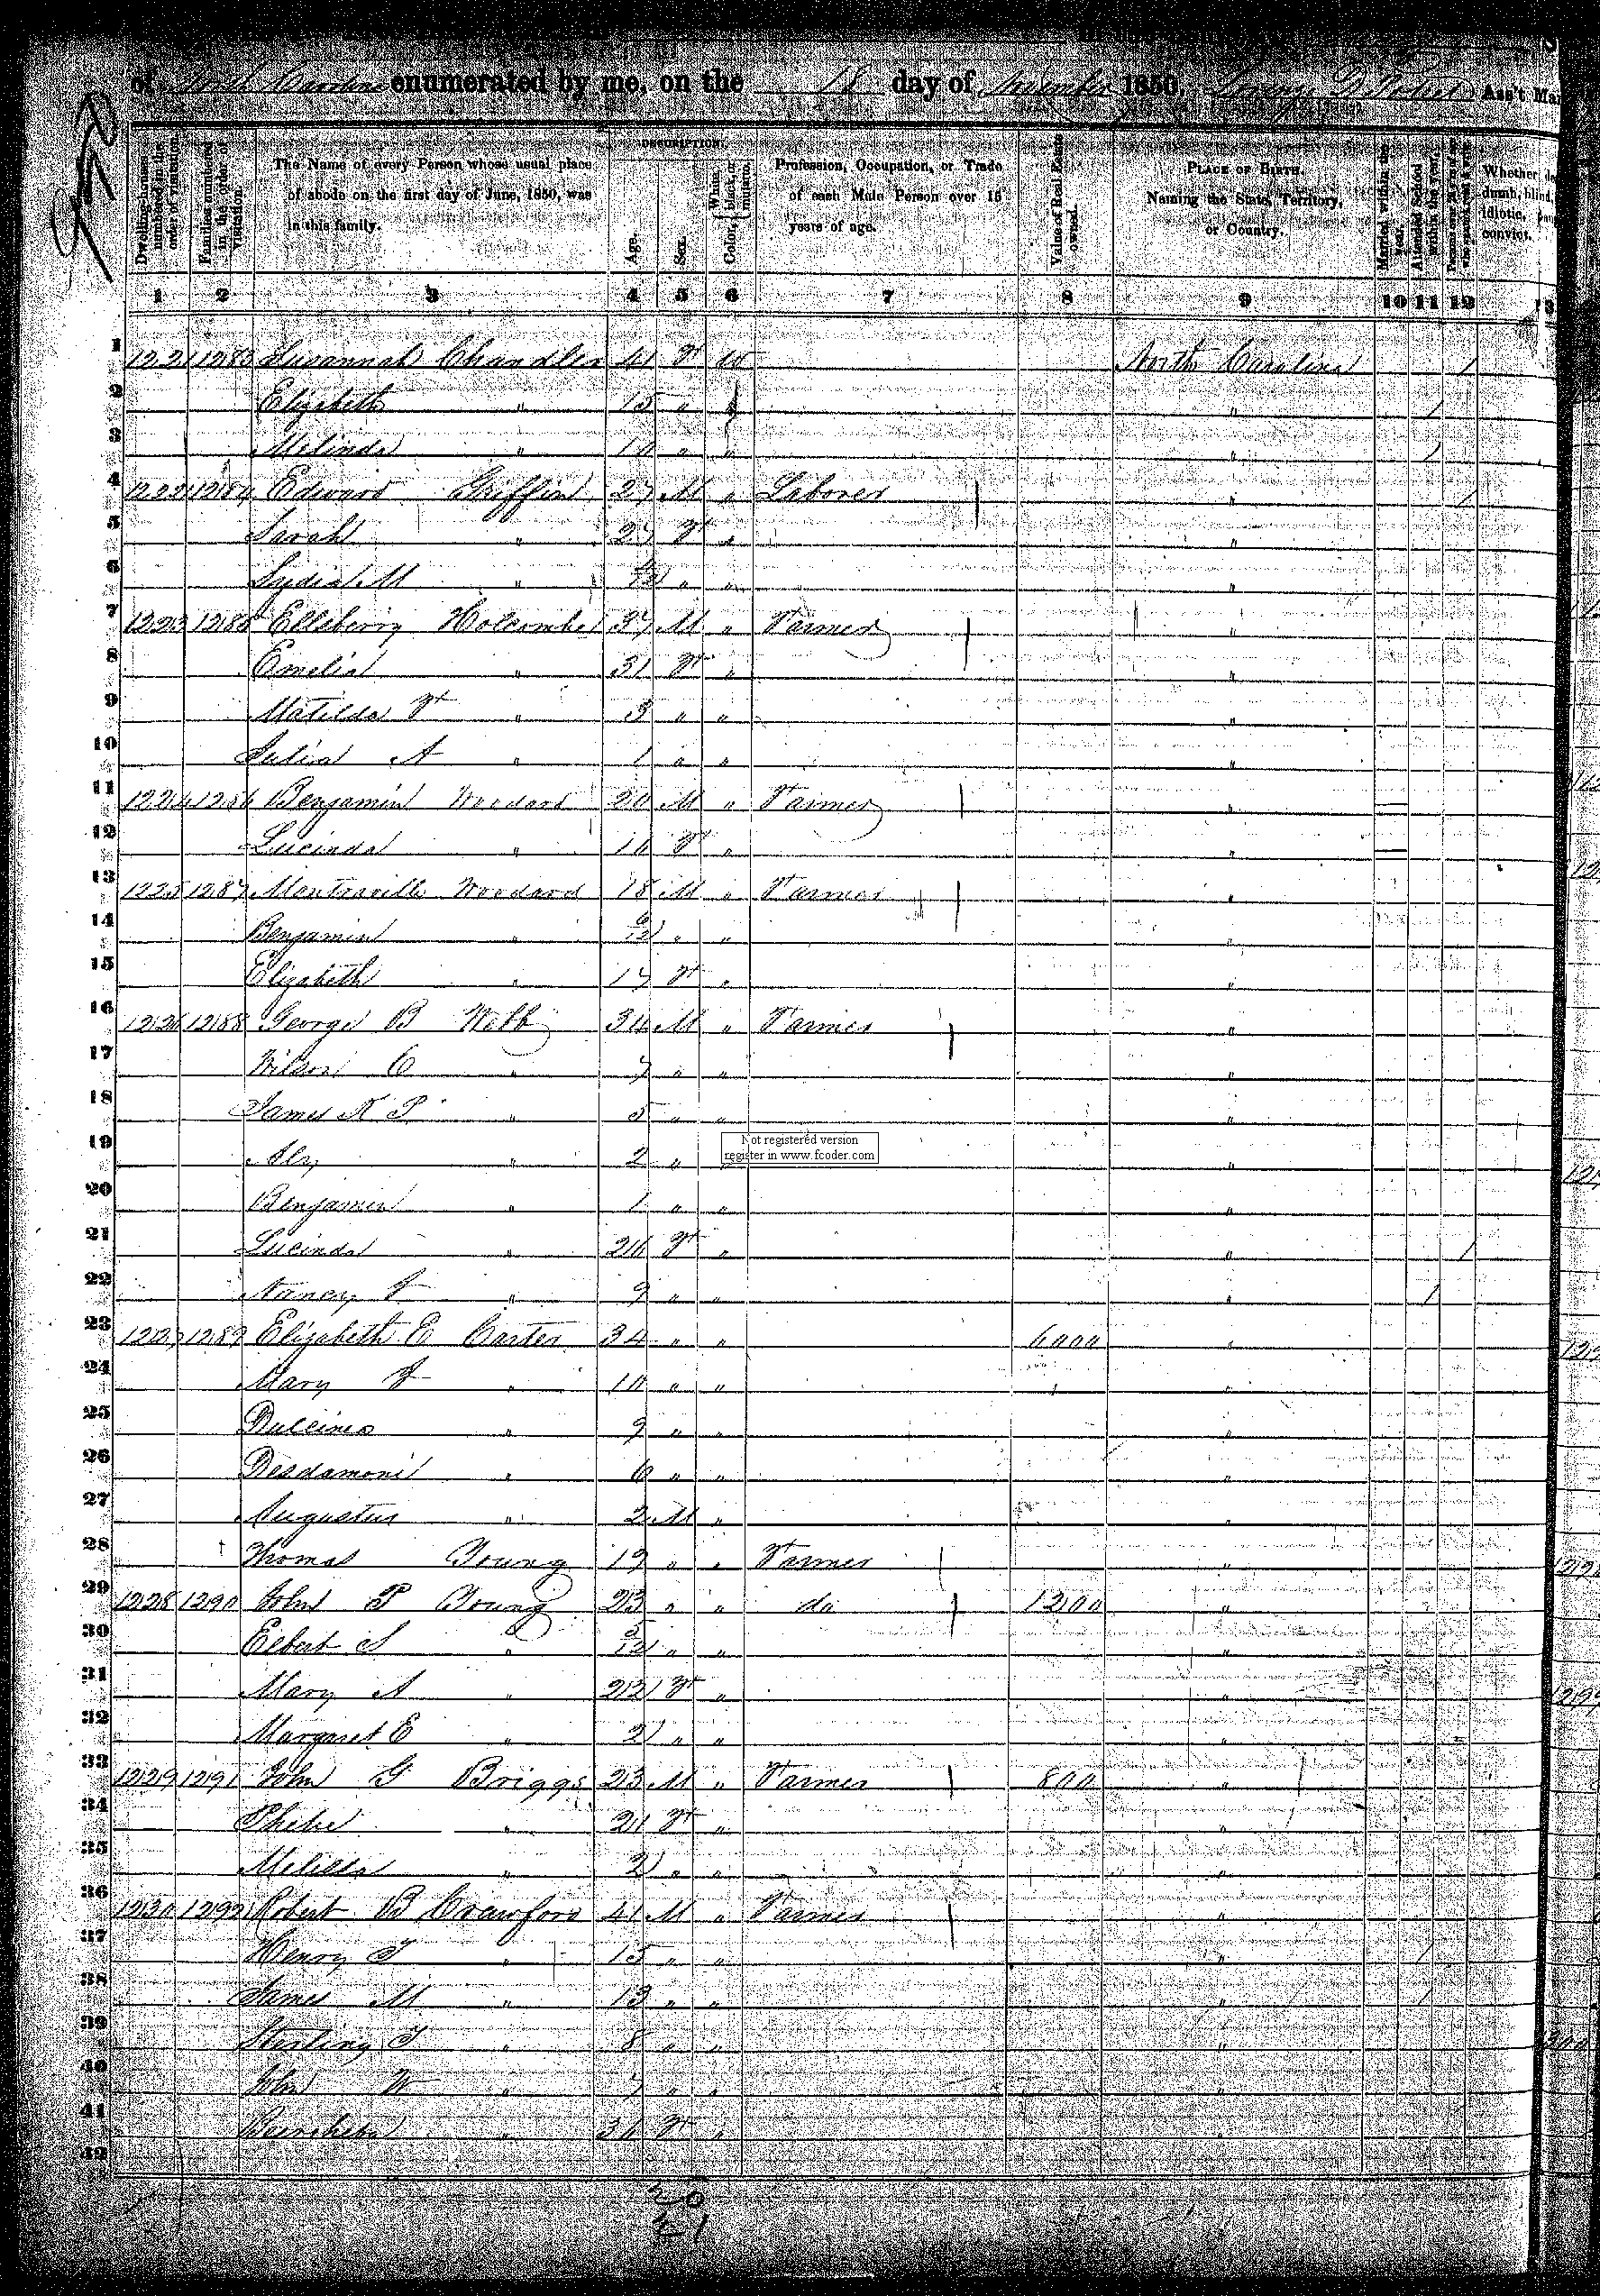 of North Carolina enumerated by me, on the 18 day of November 1850. Ass't Mar
Dwelling-houses numbered in the order of visitation.
Families numbered in the order of visitation.
The Name of every Person whose usual place
of abode on the first day of June, 1850, was
in this family.
DESCRIPTION.
Age.
Sex.
Color, White, black, or mulatto.
Profession, Occupation, or Trade
of each Male Person over 15
years of age.
Value of Real Estate owned.
PLACE OF BIRTH.
Naming the State, Territory,
or Country.
Married within the year.
Attended School within the year.
Persons over 20 y'rs of age who cannot read & write.
Whether
dumb, blind,
idiotic,
convict.
1 2 3 4 5 6 7 8 9 10 11 12 13
1 1221 1283 Susannah Chandler 41 F W North Carolina 1
2 Elizabeth " 15 " " " 1
3 Melinda " 10 " " " 1
4 1222 1284 Edward Griffin 27 M " Laborer " 1
5 Sarah " 27 F " "
6 Lydia M " " " "
7 1223 1285 Ellsberry Holcombe 37 M " Farmer "
8 Emelia " 31 F " "
9 Matilda F " 3 " " "
10 Julia A " 1 " " "
11 1224 1286 Benjamin Woodard 20 M " Farmer "
12 Lucinda " 16 F " "
13 1225 1287 Montraville Woodard 18 M " Farmer "
14 Benjamin " 6/12 " " "
15 Elizabeth " 17 F " "
16 1226 1288 George B Webb 34 M " Farmer "
17 Wilson C " 7 " " "
18 James K P " 5 " " "
19 " 2 " "
20 Benjamin " 1 " " "
21 Lucinda " 26 F " " 1
22 Nancy J " 9 " " " 1
23 1227 1289 Elizabeth E Carter 34 " " 6000 "
24 Mary J " 10 " " "
25 Dulcinea " 9 " " "
26 Desdamoni " 6 " " "
27 Augustus " 2 M " "
28 Thomas Young 19 " " Farmer "
29 1228 1290 John P Young 23 " " do 1200 "
30 Elbert S " 5/12 " " "
31 Mary A " 22 F " "
32 Margaret E " 2 " " "
33 1229 1291 John G Briggs 23 M " Farmer 800 "
34 Phebe " 21 F " "
35 Melissa " 2 " " "
36 1230 1292 Robert B Crawford 41 M " Farmer "
37 Henry T " 15 " " " 1
38 James M " 13 " " " 1
39 Sterling T " 8 " " "
40 John W " 7 " " "
41 " 36 F " "
42
20
21
Not registered version
register in www.fcoder.com